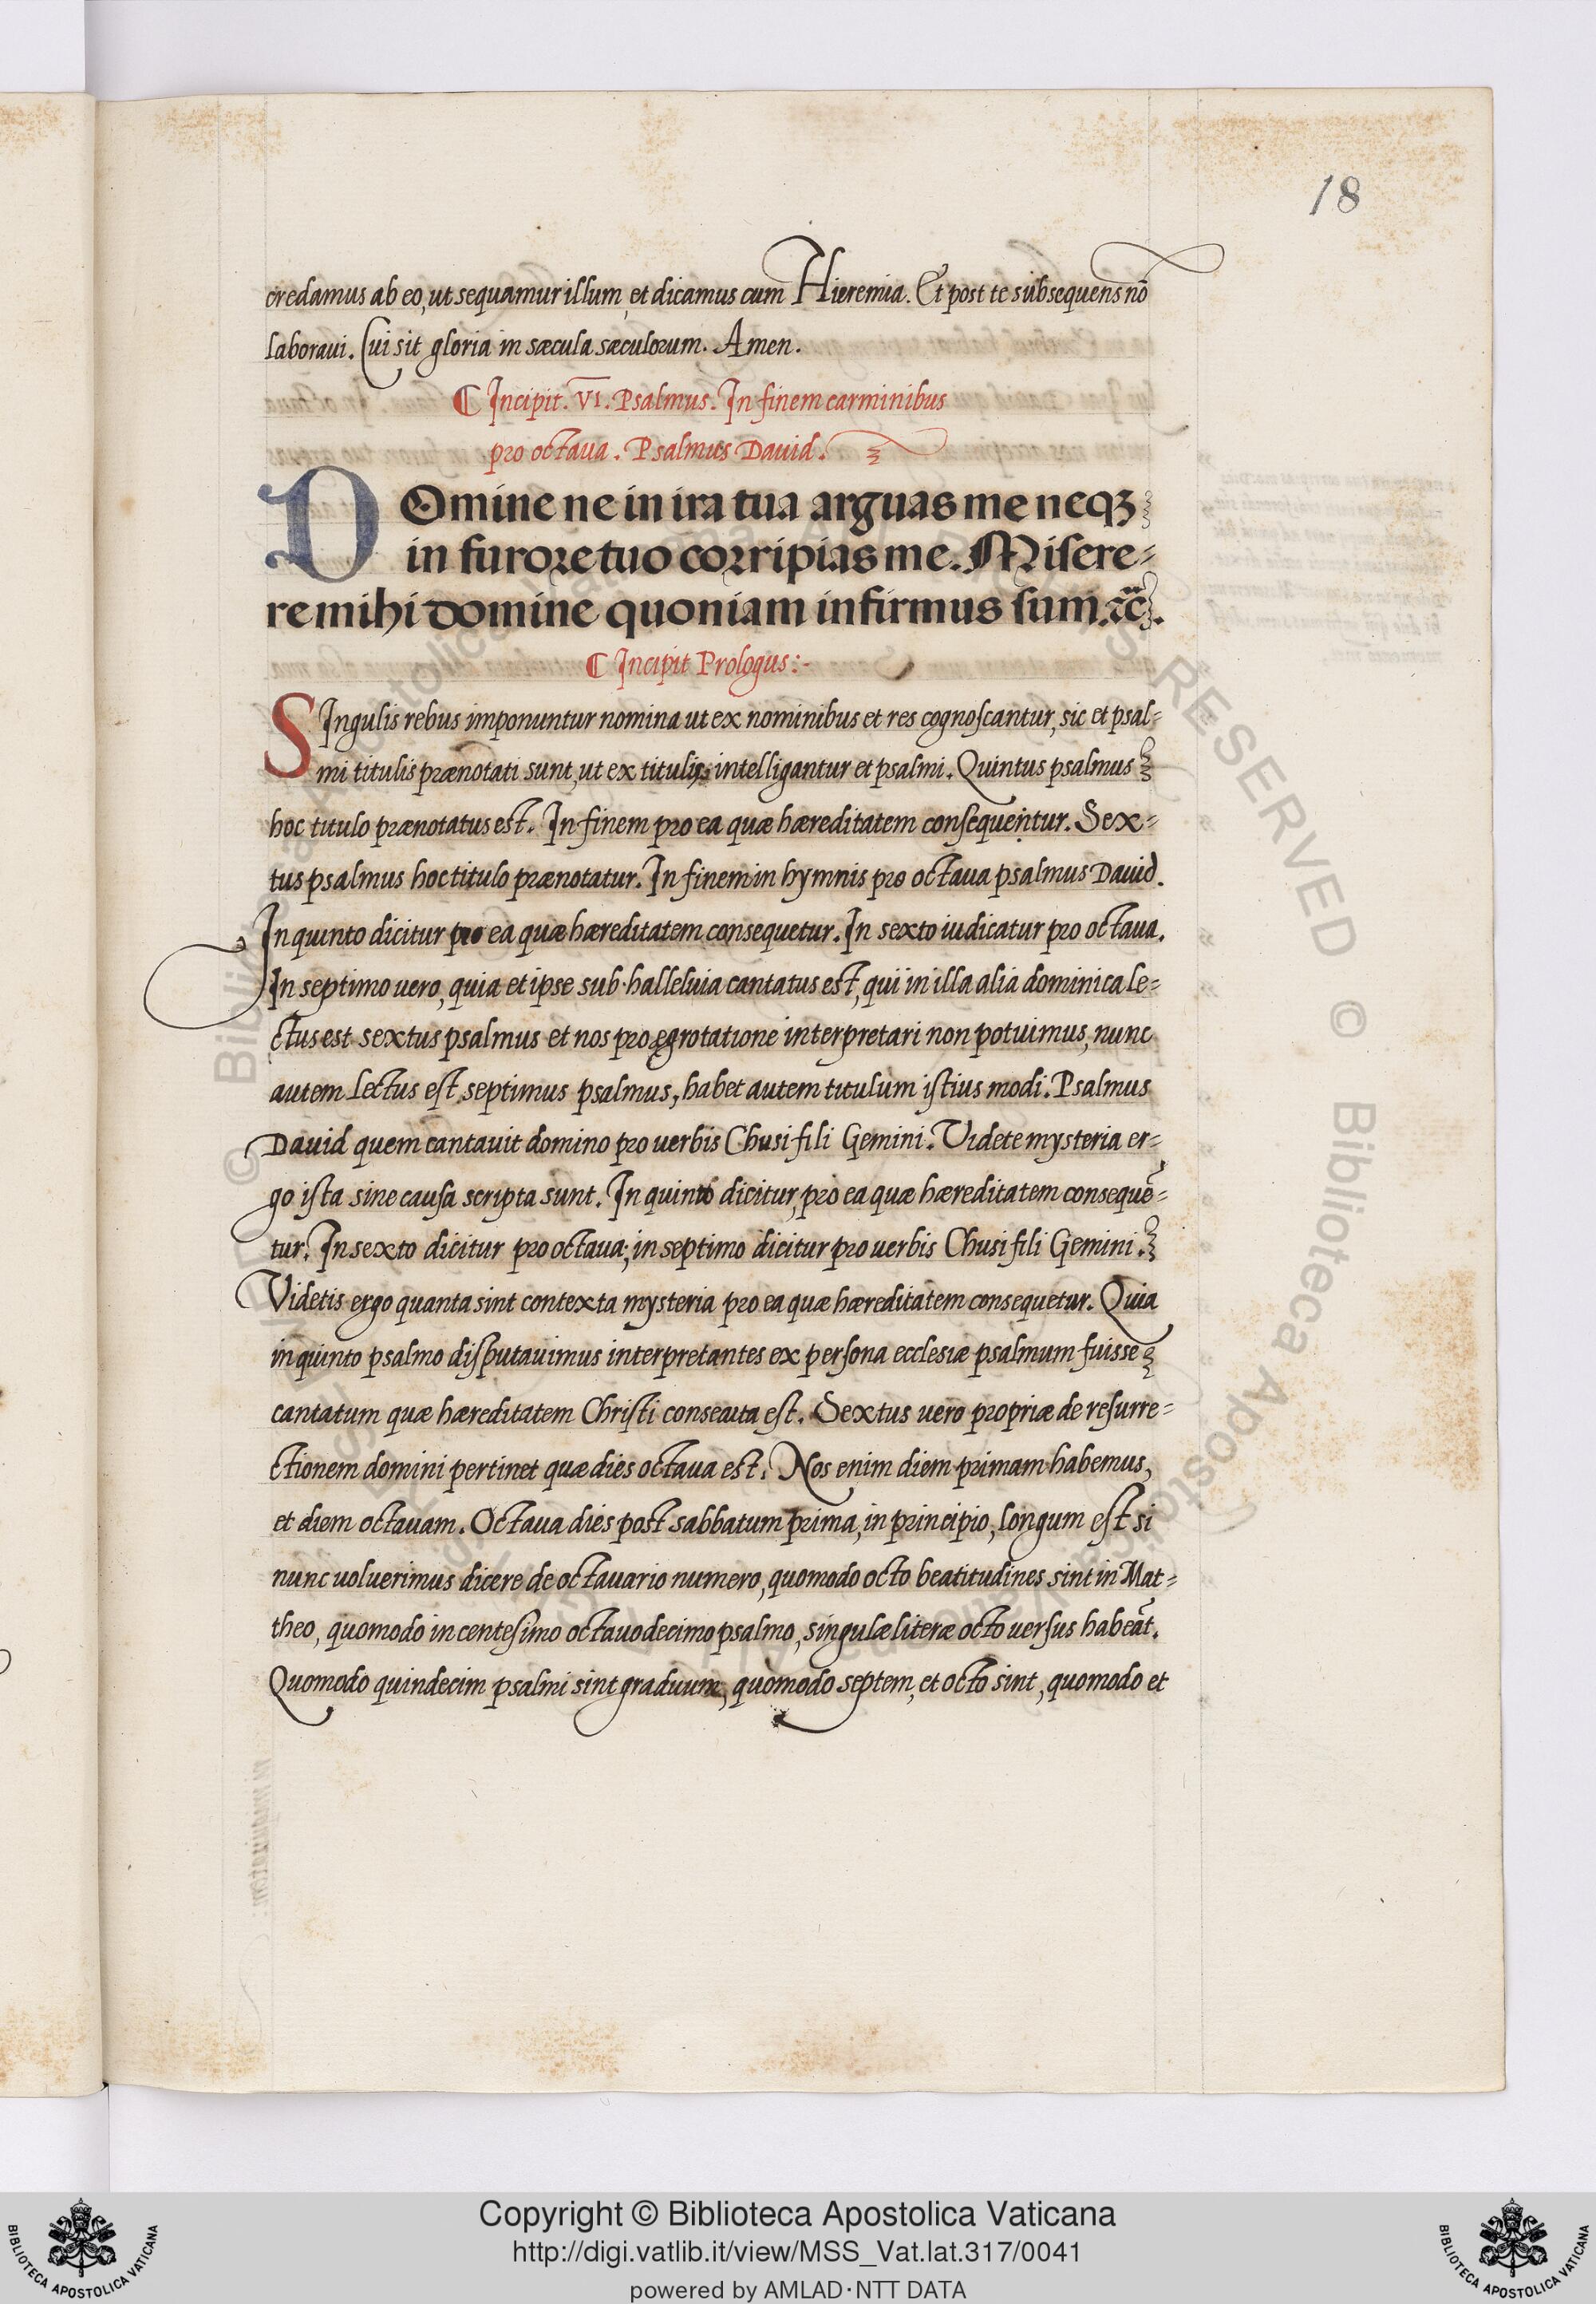 18
credamus ab eo, ut sequamur illum, et dicamus cum Hieremia. Et post te subsequens nō
laboraui. Cui sit gloria in sæcula sæculorum. Amen.
¶ Incipit. VI. Psalmus. In finem carminibus
pro octaua. Psalmus Dauid.
DOmine ne in ira tua arguas me neqꝫ
in furore tuo corripias me. Misere=
re mihi domine quoniam infirmus sum. &c.
¶ Incipit Prologus:-
SIngulis rebus imponuntur nomina ut ex nominibus et res cognoscantur, sic et psal=
mi titulis prænotati sunt, ut ex titulis intelligantur et psalmi. Quintus psalmus
hoc titulo prænotatus est. In finem pro ea quæ hæreditatem consequentur. Sex=
tus psalmus hoc titulo prænotatur. In finem in hymnis pro octaua psalmus Dauid.
In quinto dicitur pro ea quæ hæreditatem consequetur. In sexto iudicatur pro octaua.
In septimo uero, quia et ipse sub halleluia cantatus est, qui in illa alia dominica le=
ctus est sextus psalmus et nos pro ęgrotatione interpretari non potuimus, nunc
autem lectus est septimus psalmus, habet autem titulum istius modi. Psalmus
Dauid quem cantauit domino pro uerbis Chusi fili Gemini. Videte mysteria er=
go ista sine causa scripta sunt. In quinto dicitur, pro ea quæ hæreditatem consequē=
tur. In sexto dicitur pro octaua; in septimo dicitur pro uerbis Chusi fili Gemini.
Videtis ergo quanta sint contexta mysteria pro ea quæ hæreditatem consequetur. Quia
in quinto psalmo disputauimus interpretantes ex persona ecclesiæ psalmum fuisse
cantatum quæ hæreditatem Christi consecuta est. Sextus uero propriæ de resurre=
ctionem domini pertinet quæ dies octaua est. Nos enim diem primam habemus,
et diem octauam. Octaua dies post sabbatum prima, in principio, longum est si
nunc uoluerimus dicere de octauario numero, quomodo octo beatitudines sint in Mat=
theo, quomodo in centesimo octauodecimo psalmo, singulæ literæ octo uersus habeāt.
Quomodo quindecim psalmi sint graduum, quomodo septem, et octo sint, quomodo et
Copyright © Biblioteca Apostolica Vaticana
http://digi.vatlib.it/view/MSS_Vat.lat.317/0041
powered by AMLAD·NTT DATA
BIBLIOTECA APOSTOLICA VATICANA
BIBLIOTECA APOSTOLICA VATICANA